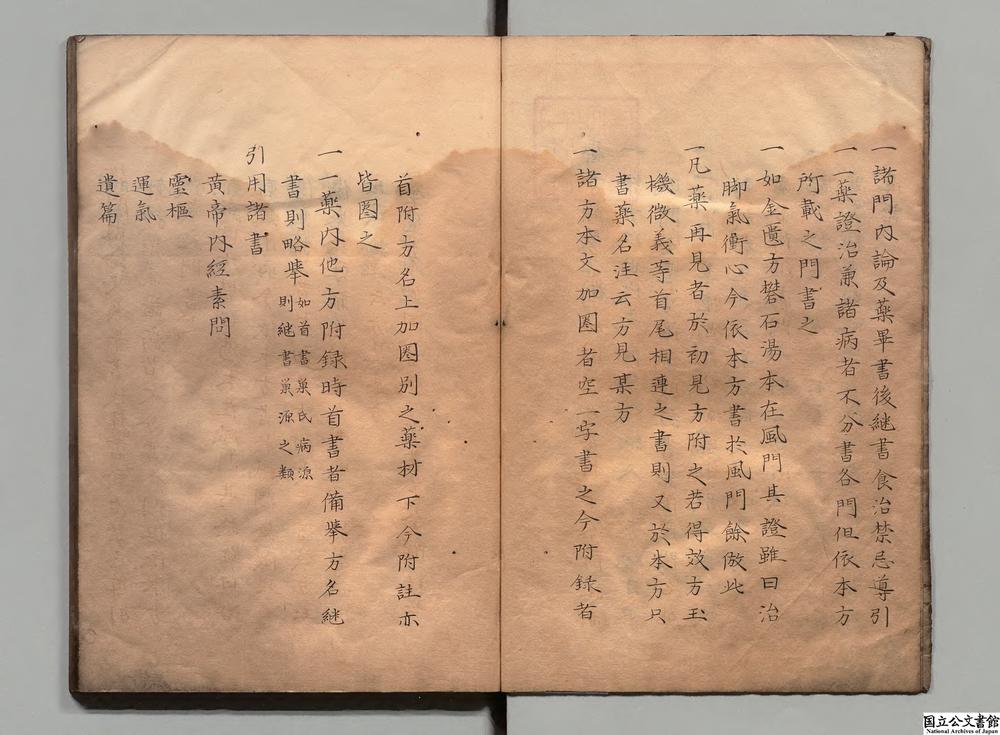 一諸門內論及藥畢書後継書食治禁忌導引
一一藥證治兼諸病者不分書各門但依本方
所載之門書之
一如金匱方礬石湯本在風門其證雖曰治
脚氣衝心今依本方書於風門餘倣此
一凡藥再見者於初見方附之若得效方玉
機微義等首尾相連之書則又於本方只
書藥名注云方見某方
一諸方本文加圈者空一字書之今附録者
首附方名上加圈別之藥材下今附註亦
皆圈之
一一藥內他方附録時首書者備舉方名継
書則略舉如首書巢氏病源
則継書巢源之類
引用諸書
黃帝內經素問
靈樞
運氣
遺篇
国立公文書館
National Archives of Japan